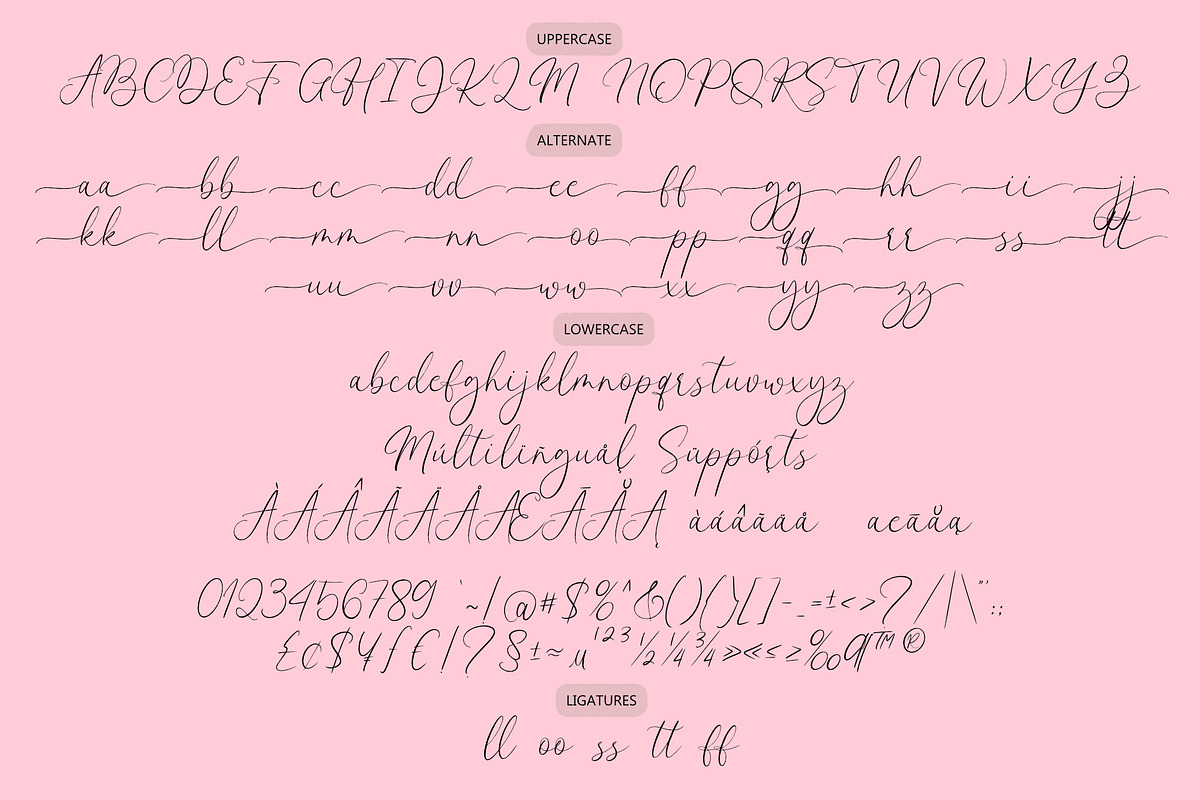 UPPERCASE
ABCDEFGHIJKLM NOPQRSTUVWXYZ
ALTERNATE
aa bb cc dd ee ff gg hh ii jj
kk ll mm nn oo pp qq rr ss tt
uu vv ww xx yy zz
LOWERCASE
abcdefghijklmnopqrstuvwxyz
Múltilïñguål Süppórts
ÀÁÂÃÄÅÆĀĂĄ àáâãäå aeāåą
0123456789 `~!@#$%^&()(){}[]-_=±<>?/|\"':;
£¢$¥ƒ€!?§±≈µ¹²³½¼¾»«≤≥‰¶™®
LIGATURES
ll oo ss tt ff